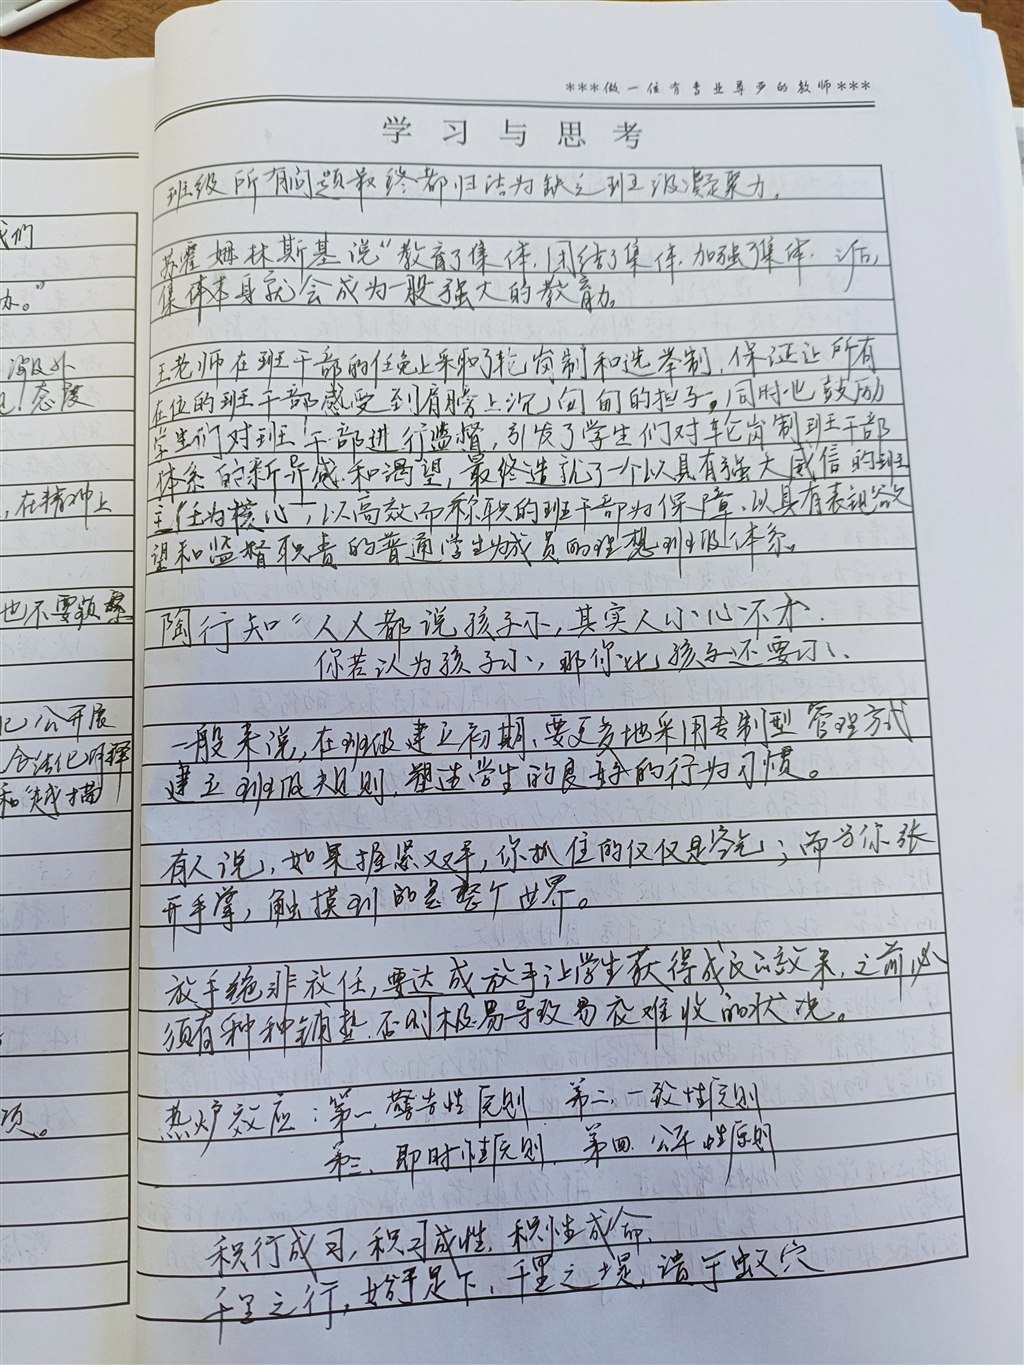 ***做一位有专业尊严的教师***
学习与思考
班级所有问题最终都归结为缺乏班级凝聚力。
苏霍姆林斯基说"教育了集体,团结了集体,加强了集体,以后,
集体本身就会成为一股强大的教育力。
王老师在班干部的任免上采取了轮岗制和选举制,保证让所有
在位的班干部感受到肩膀上沉甸甸的担子。同时也鼓励
学生们对班干部进行监督,引发了学生们对轮岗制班干部
体系的新异感和渴望,最终造就了一个以具有强大威信的班
主任为核心,以高效而称职的班干部为保障,以具有表现欲
望和监督职责的普通学生为成员的理想班级体系。
陶行知"人人都说孩子小,其实人小心不小.
你若认为孩子小,那你比孩子还要小、
一般来说,在班级建立初期,要更多地采用专制型管理方式
建立班级规则,塑造学生的良好的行为习惯。
有人说,如果握紧双手,你抓住的仅仅是空气;而当你张
开手掌,触摸到的是整个世界。
放手绝非放任,要达成放手让学生获得成长的效果,之前必
须有种种铺垫.否则极易导致易放难收的状况。
热炉效应:第一、警告性原则 第二、一致性原则
第三、即时性原则. 第四.公平性原则
积行成习,积习成性,积性成命.
千里之行,始于足下,千里之堤,溃于蚁穴
我们
办。"
态度
,在精神上
也不要
公开展
合法化
和"越描
项。